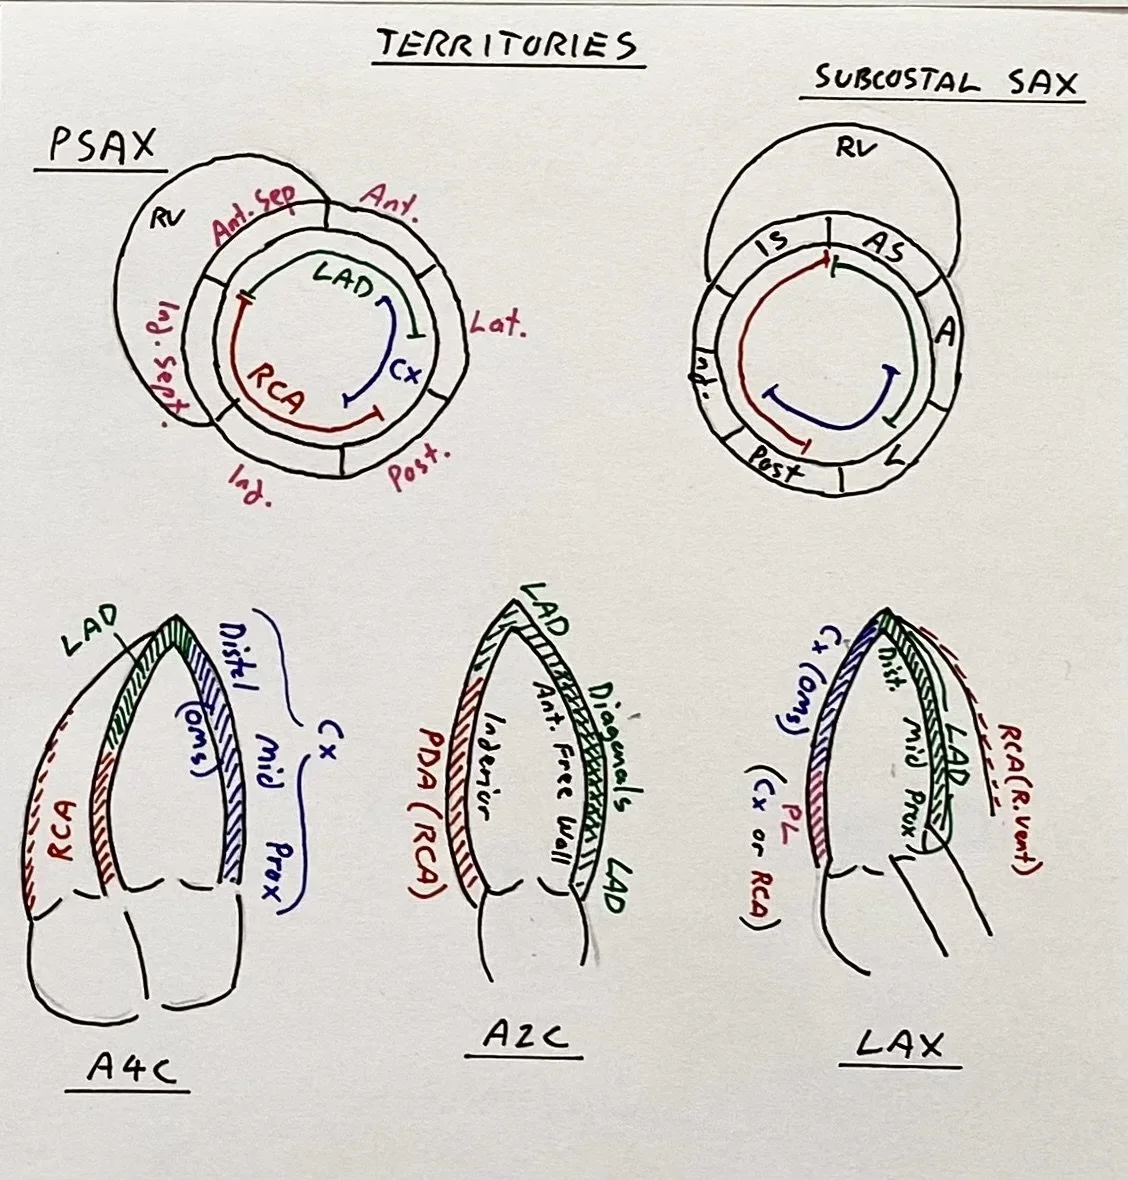 TERRITORIES
SUBCOSTAL SAX
PSAX
RV
Ant. Sep
Ant.
LAD
Inf. Sept.
Lat.
RCA
Cx
Inf.
Post.
RV
IS
AS
A
Inf.
Post
L
LAD
Distal
(oms)
Mid
Cx
RCA
Prox
A4C
LAD
Diagonals
Ant. Free Wall
Inferior
PDA (RCA)
LAD
A2C
Cx (oms)
Dist.
Mid
Prox
LAD
RCA (R.vent)
PL
(Cx or RCA)
LAX